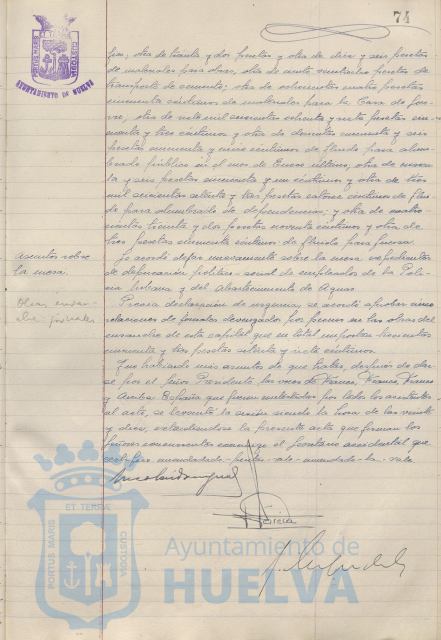 74
PORTUS MARIS CUSTODIA
AYUNTAMIENTO DE HUELVA
otra de treinta y dos pesetas y otra de diez y seis pesetas
de materiales para obras, otra de ciento pesetas de
transporte de cemento, otra de ochocientas cuatro pesetas
cincuenta céntimos de materiales para la Casa de
otra de mil seiscientas ochenta y siete pesetas
y tres céntimos y otra de doscientas cincuenta y seis
pesetas noventa y seis céntimos de fluido para alum-
brado público en el mes de Enero último, otra de
y seis pesetas cincuenta y un céntimos y otra de tres
mil seiscientas setenta y tres pesetas catorce céntimos de flui-
do para alumbrado de dependencias, y otra de cuatro-
cientas treinta y dos pesetas noventa céntimos y otra de
tres pesetas cincuenta céntimos de fluido para fuerza.
Asuntos sobre
la mesa.
Se acordó dejar nuevamente sobre la mesa expedientes
de depuración político-social de empleados de la Poli-
cía Urbana y del Abastecimiento de Aguas.
Obras ensan-
che - jornales
Previa declaración de urgencia, se acordó aprobar cinco
relaciones de jornales devengados por peones en las obras del
ensanche de esta capital que en total importan trescientas
cincuenta y tres pesetas setenta y siete céntimos.
Y no habiendo más asuntos de que tratar, después de dar-
se por el Señor Presidente las voces de Franco, Franco, Franco
y Arriba España que fueron contestadas por todos los asistentes
al acto, se levantó la sesión siendo la hora de las veinte
y diez, extendiéndose la presente acta que firman los
Señores concurrentes conmigo el Secretario accidental que
certifico enmendado vale
García
PORTUS MARIS ET TERRAE CUSTODIA
Ayuntamiento de
HUELVA